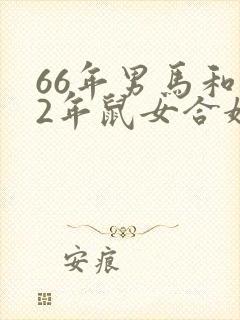 66年男馬和
2年鼠女合
安痕